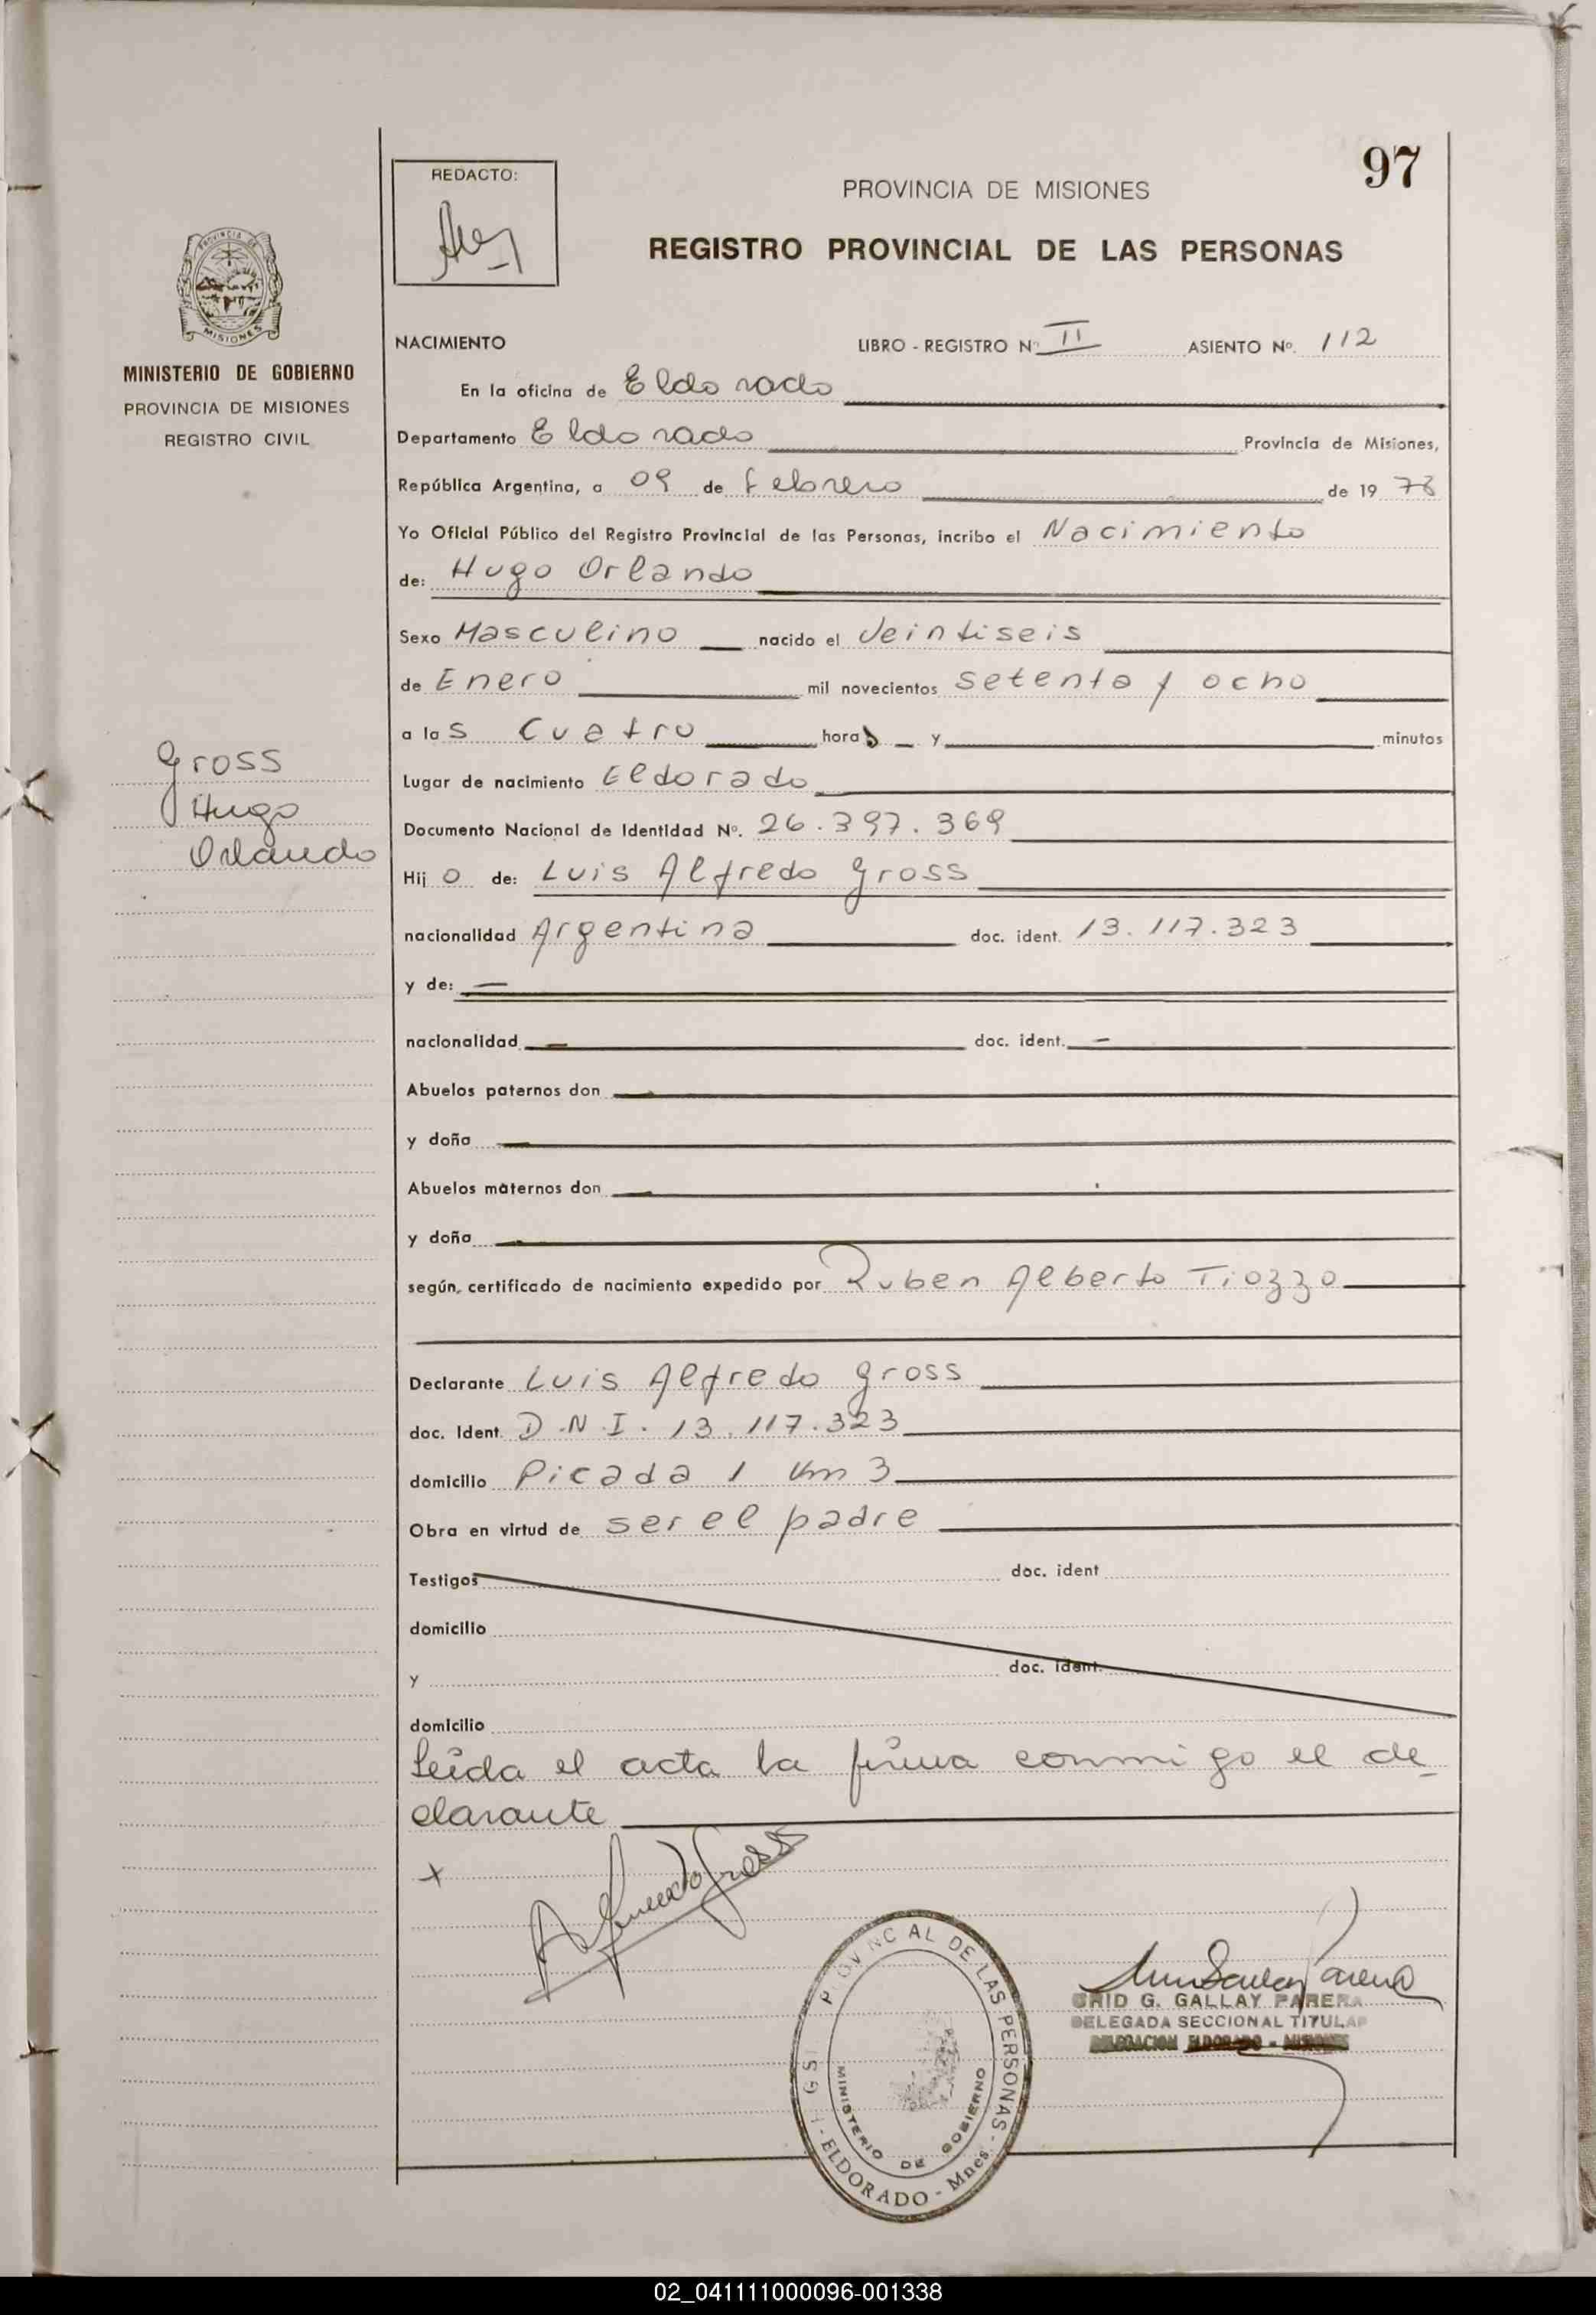 97
REDACTO:
PROVINCIA DE MISIONES
REGISTRO PROVINCIAL DE LAS PERSONAS
PROVINCIA DE
MISIONES
MINISTERIO DE GOBIERNO
PROVINCIA DE MISIONES
REGISTRO CIVIL
NACIMIENTO LIBRO - REGISTRO Nº II ASIENTO Nº. 112
En la oficina de Eldorado
Departamento Eldorado Provincia de Misiones,
República Argentina, a 09 de Febrero de 19 78
Yo Oficial Público del Registro Provincial de las Personas, incribo el Nacimiento
de: Hugo Orlando
Sexo Masculino nacido el Veintiseis
de Enero mil novecientos setenta y ocho
a las cuatro horas y minutos
Gross
Hugo
Orlando
Lugar de nacimiento Eldorado
Documento Nacional de Identidad Nº. 26.397.369
Hijo de: Luis Alfredo Gross
nacionalidad Argentina doc. ident. 13.117.323
y de: —
nacionalidad — doc. ident. —
Abuelos paternos don —
y doña —
Abuelos maternos don —
y doña —
según, certificado de nacimiento expedido por Ruben Alberto Tiozzo
Declarante Luis Alfredo Gross
doc. Ident. D.N.I. 13.117.323
domicilio Picada 1 Km 3
Obra en virtud de ser el padre
Testigos doc. ident
domicilio
y doc. ident.
domicilio
Leída el acta la firma conmigo el de-
clarante
+
PROVINCIAL DE LAS PERSONAS - ELDORADO - Mnes.
MINISTERIO DE GOBIERNO
G. GALLAY PARERA
DELEGADA SECCIONAL TITULAR
DELEGACION ELDORADO - MISIONES
02_041111000096-001338